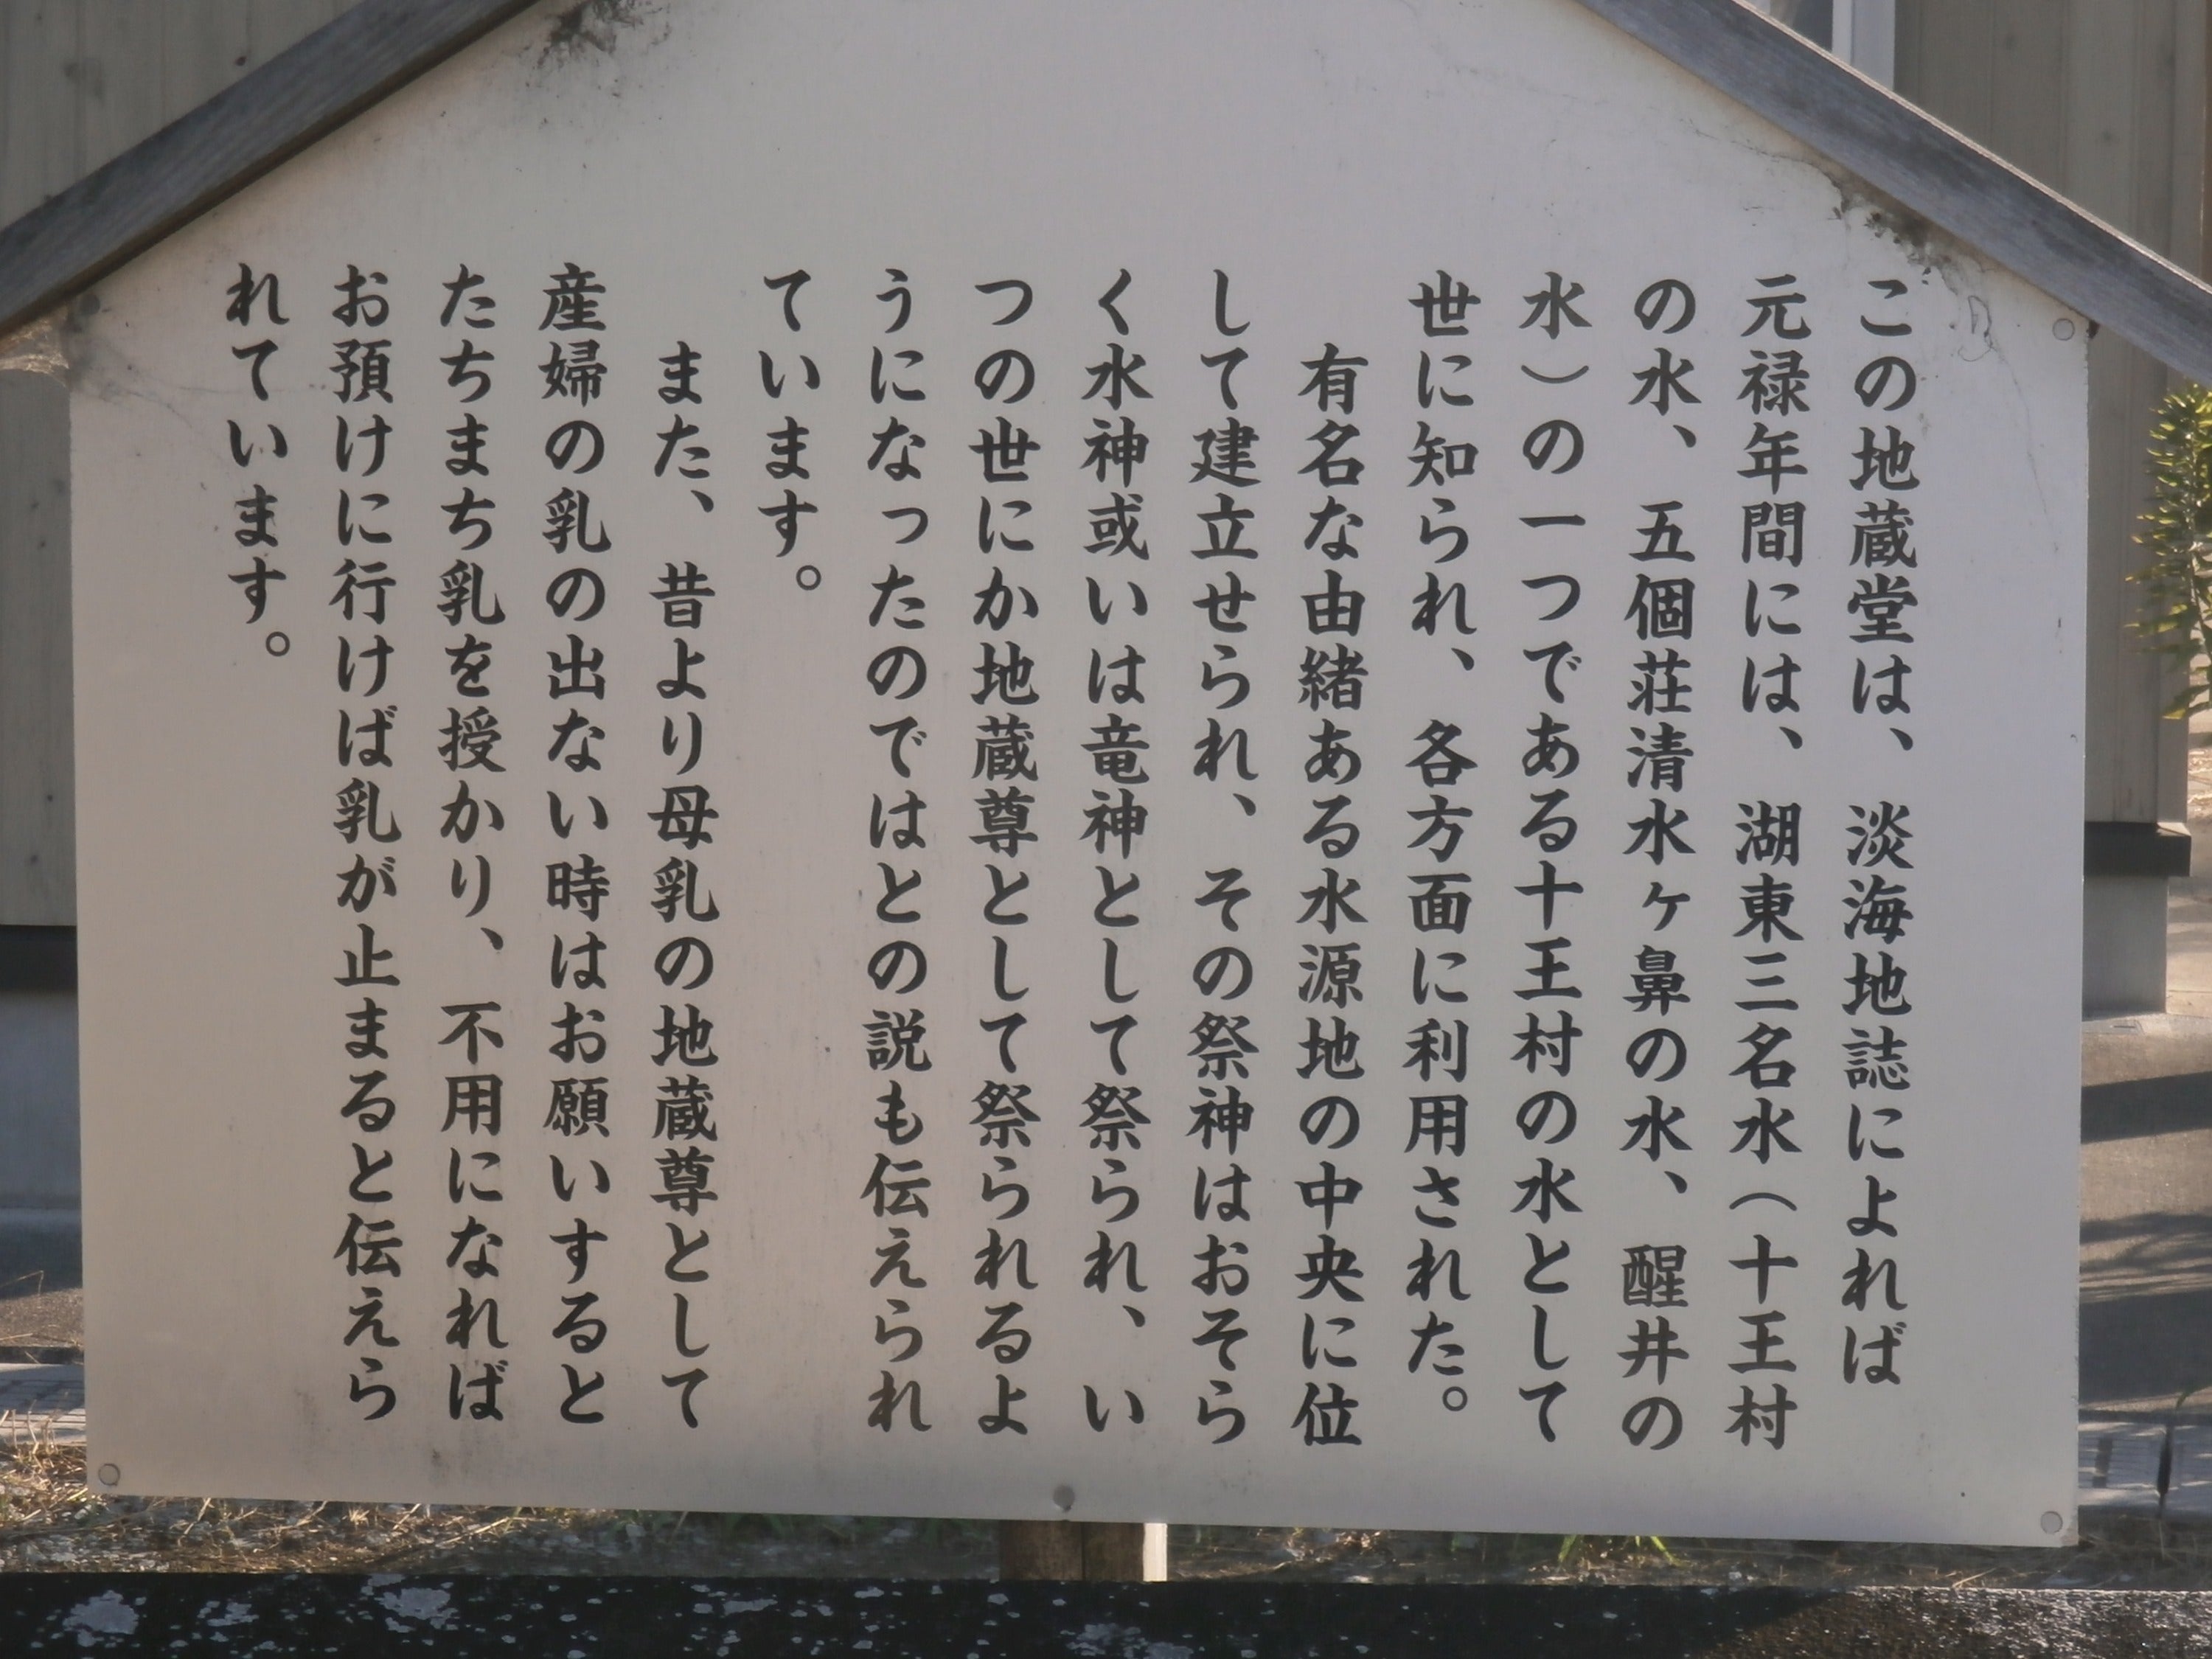 この地蔵堂は、淡海地誌によれば
元禄年間には、湖東三名水（十王村
の水、五個荘清水ヶ鼻の水、醒井の
水）の一つである十王村の水として
世に知られ、各方面に利用された。
有名な由緒ある水源地の中央に位
して建立せられ、その祭神はおそら
く水神或いは竜神として祭られ、い
つの世にか地蔵尊として祭られるよ
うになったのではとの説も伝えられ
ています。
また、昔より母乳の地蔵尊として
産婦の乳の出ない時はお願いすると
たちまち乳を授かり、不用になれば
お預けに行けば乳が止まると伝えら
れています。